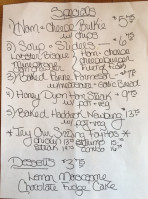 Specials
1) Ham + Cheese Bulkie $5.75
w/ chips
2) Soup + Sliders $6.75
Lobster Bisque Ham + cheese
Minestrone Cheeseburger
Fried Fish
3) Baked Penne Parmesan
w/ meatsauce + Garlic Bread
4) Honey Dijon Ham Steak $9
w/ pot + veg
5) Baked Haddock Newburg
w/ pot + veg
* Try Our Sizzling Fajitas *
chicken steak combo
Desserts $3.75
Lemon Mascarpone
Chocolate Fudge Cake